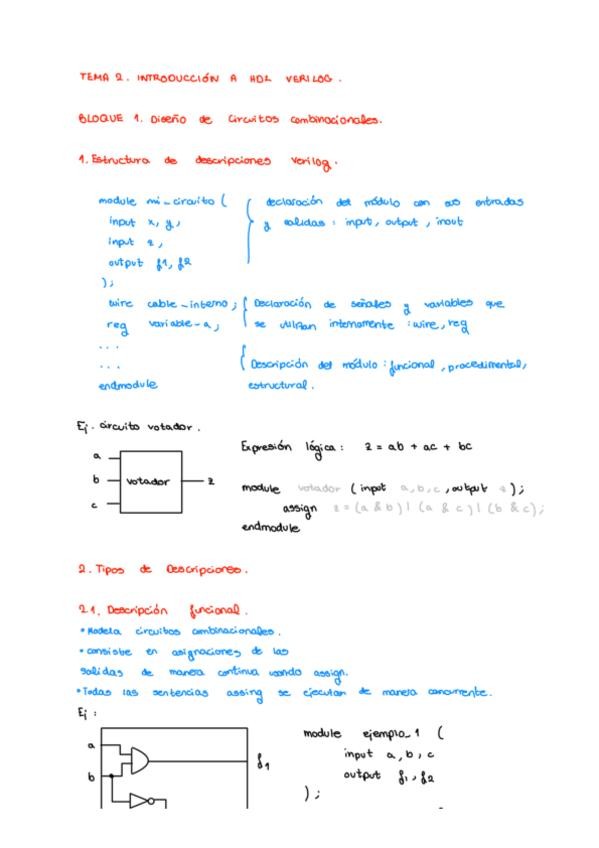 TEMA 2. INTRODUCCIÓN A HDL VERILOG.
BLOQUE 1. Diseño de Circuitos combinacionales.
1. Estructura de descripciones Verilog.
module mi_circuito (
input x, y,
input z,
output f1, f2
);
declaración del módulo con sus entradas
y salidas: input, output, inout
wire cable_interno;
reg variable_a;
Declaración de señales y variables que
se utilizan internamente: wire, reg
...
...
endmodule
Descripción del módulo: funcional, procedimental,
estructural.
Ej. circuito votador.
a
b
c
votador
z
Expresión lógica: z = ab + ac + bc
module votador (input a, b, c, output z);
assign z = (a & b) | (a & c) | (b & c);
endmodule
2. Tipos de Descripciones.
2.1. Descripción funcional.
• Modela circuitos combinacionales.
• consiste en asignaciones de las
salidas de manera continua usando assign.
• Todas las sentencias assing se ejecutan de manera concurrente.
Ej:
a
b
f1
module ejemplo_1 (
input a, b, c
output f1, f2
);